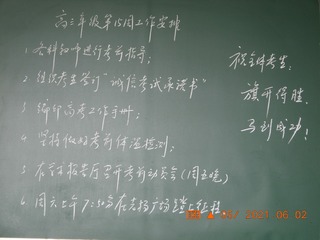 高三年级第15周工作安排
1. 各科组进行考前指导；
2. 组织考生签订"诚信考试承诺书"
3. 编印高考工作手册；
4. 坚持做好考前体温检测；
5. 在学术报告厅召开考前动员会（周五晚）
6. 周六上午7:50在广场踏上征程
祝全体考生：
旗开得胜，
马到成功！
2021 06 02